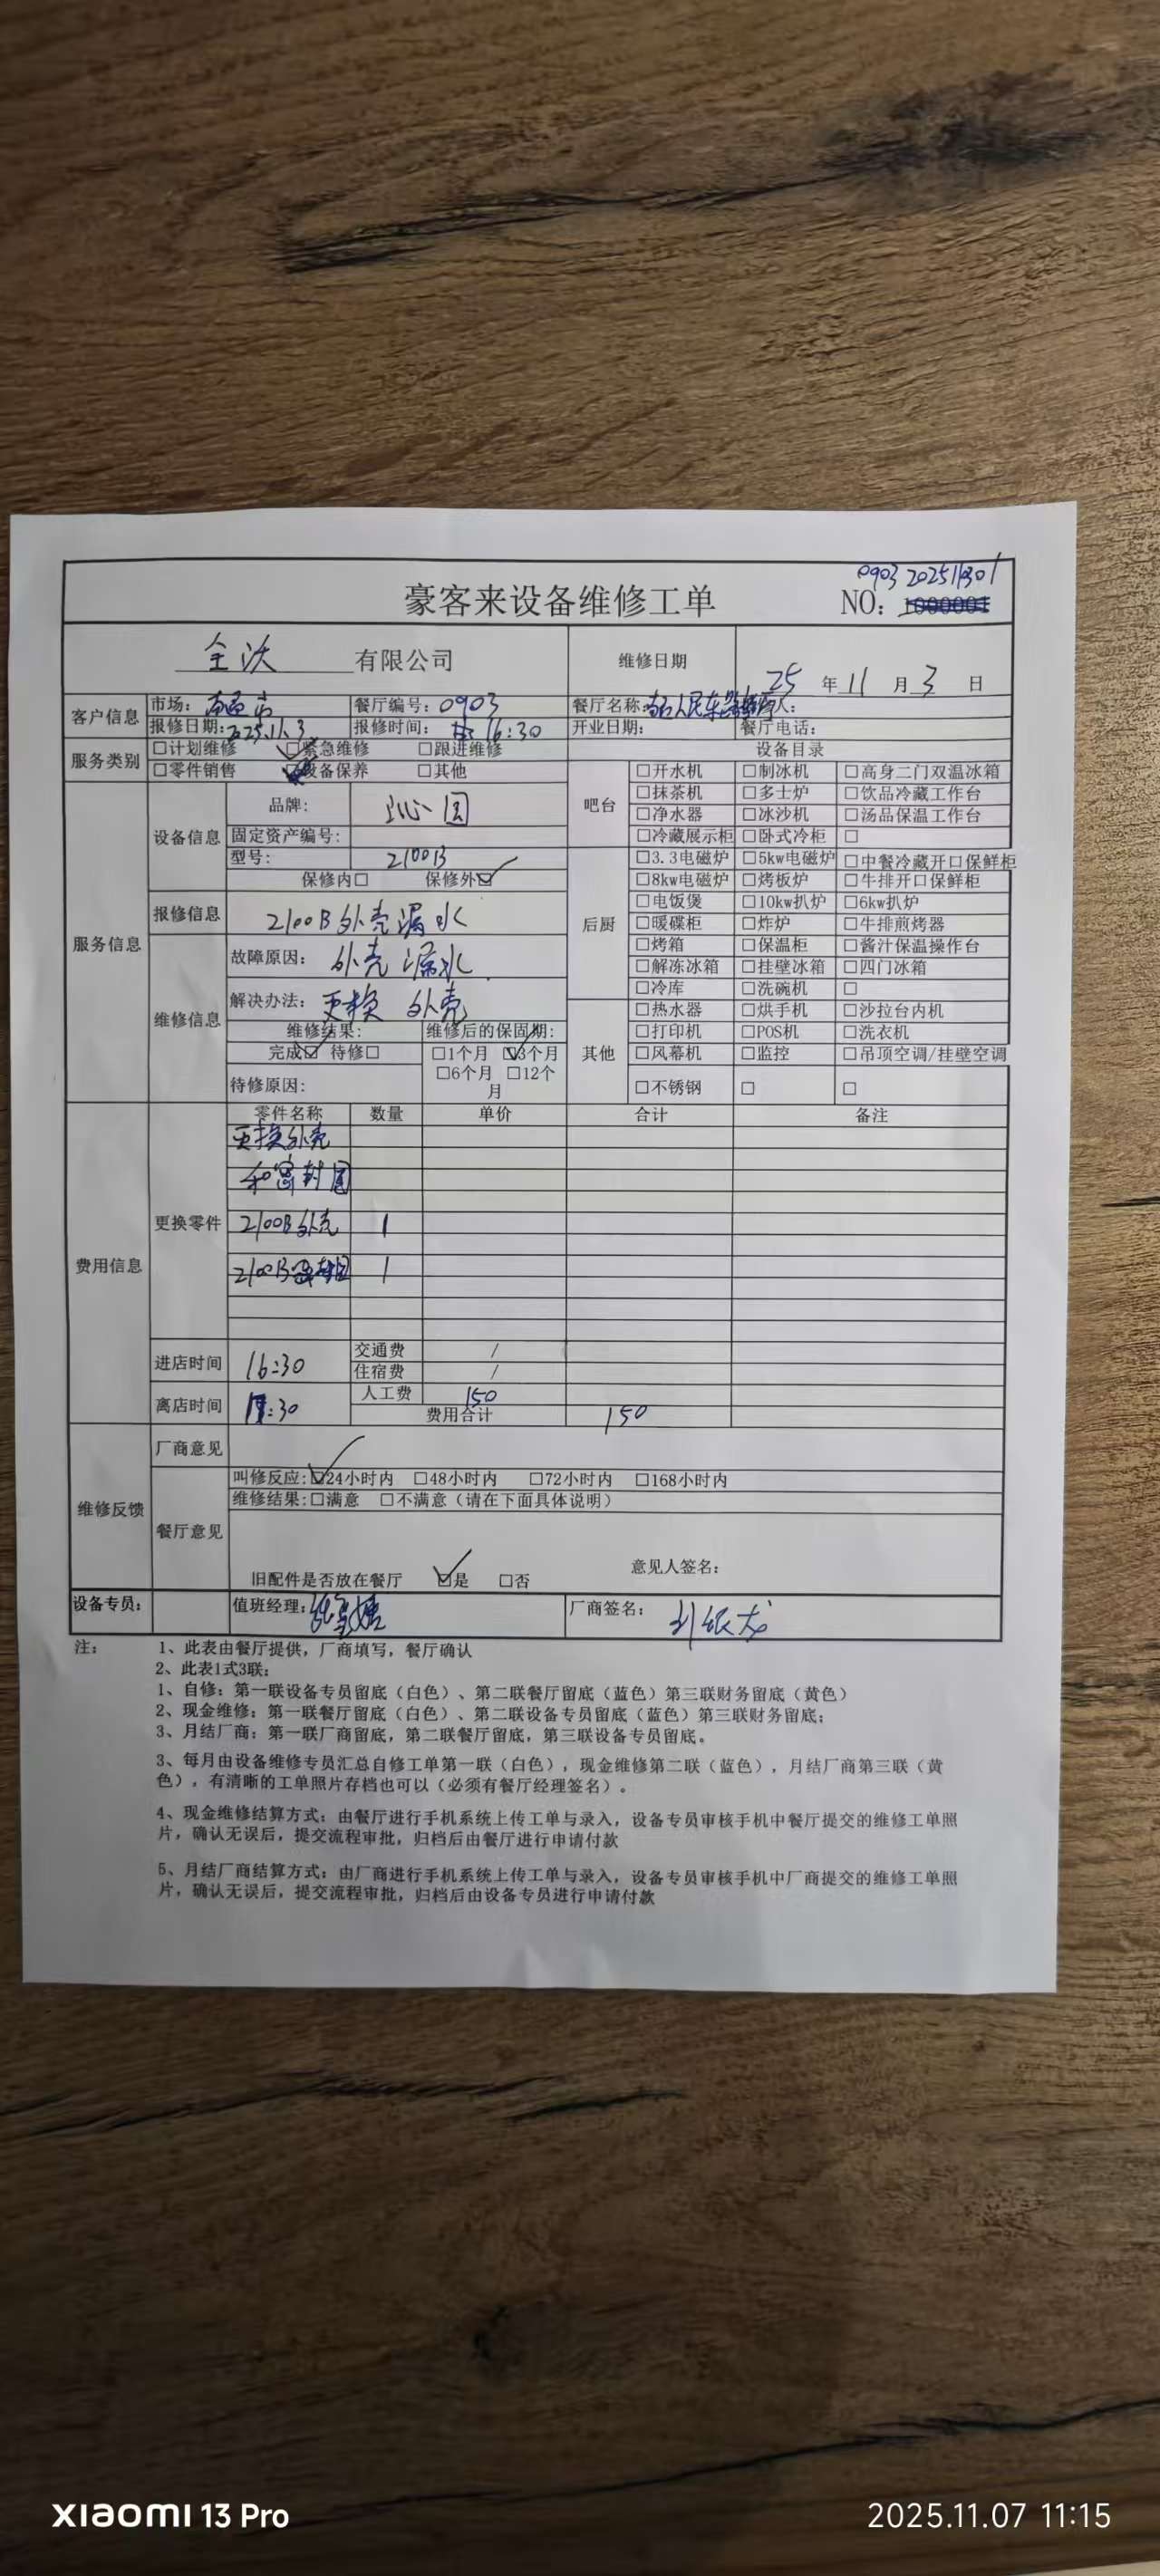 0903 2025110301
豪客来设备维修工单
NO:
全沃 有限公司 维修日期 25 年 11 月 3 日
客户信息 市场: 南通市 餐厅编号: 0903 餐厅名称: 人民东路
报修日期: 2025.11.3 报修时间: 16:30 开业日期: 餐厅电话:
服务类别 □计划维修 ☑紧急维修 □跟进维修 设备目录
□零件销售 设备保养 □其他
吧台 □开水机 □制冰机 □高身二门双温冰箱
□抹茶机 □多士炉 □饮品冷藏工作台
□净水器 □冰沙机 □汤品保温工作台
□冷藏展示柜 □卧式冷柜 □
服务信息 设备信息 品牌: 沁园
固定资产编号:
型号: 2100B
保修内□ 保修外☑
后厨 □3.3电磁炉 □5kw电磁炉 □中餐冷藏开口保鲜柜
□8kw电磁炉 □烤板炉 □牛排开口保鲜柜
□电饭煲 □10kw扒炉 □6kw扒炉
□暖碟柜 □炸炉 □牛排煎烤器
□烤箱 □保温柜 □酱汁保温操作台
□解冻冰箱 □挂壁冰箱 □四门冰箱
□冷库 □洗碗机 □
报修信息 2100B外壳漏水
维修信息 故障原因: 外壳漏水
解决办法: 更换 外壳
维修结果: 维修后的保固期:
完成☑ 待修□ □1个月 ☑3个月
□6个月 □12个月
待修原因:
其他 □热水器 □烘手机 □沙拉台内机
□打印机 □POS机 □洗衣机
□风幕机 □监控 □吊顶空调/挂壁空调
□不锈钢 □ □
费用信息 更换零件 零件名称 数量 单价 合计 备注
更换外壳
和密封圈
2100B外壳 1
2100B密封圈 1
进店时间 16:30 交通费 /
住宿费 /
离店时间 :30 人工费 150
费用合计 150
维修反馈 厂商意见
餐厅意见 叫修反应: ☑24小时内 □48小时内 □72小时内 □168小时内
维修结果: □满意 □不满意（请在下面具体说明）
意见人签名:
旧配件是否放在餐厅 ☑是 □否
设备专员: 值班经理: 厂商签名:
注: 1、此表由餐厅提供，厂商填写，餐厅确认
2、此表1式3联:
1、自修: 第一联设备专员留底（白色）、第二联餐厅留底（蓝色）第三联财务留底（黄色）
2、现金维修: 第一联餐厅留底（白色）、第二联设备专员留底（蓝色）第三联财务留底;
3、月结厂商: 第一联厂商留底，第二联餐厅留底，第三联设备专员留底。
3、每月由设备维修专员汇总自修工单第一联（白色），现金维修第二联（蓝色），月结厂商第三联（黄
色），有清晰的工单照片存档也可以（必须有餐厅经理签名）。
4、现金维修结算方式: 由餐厅进行手机系统上传工单与录入，设备专员审核手机中餐厅提交的维修工单照
片，确认无误后，提交流程审批，归档后由餐厅进行申请付款
5、月结厂商结算方式: 由厂商进行手机系统上传工单与录入，设备专员审核手机中厂商提交的维修工单照
片，确认无误后，提交流程审批，归档后由设备专员进行申请付款
XIAOMI 13 Pro
2025.11.07 11:15